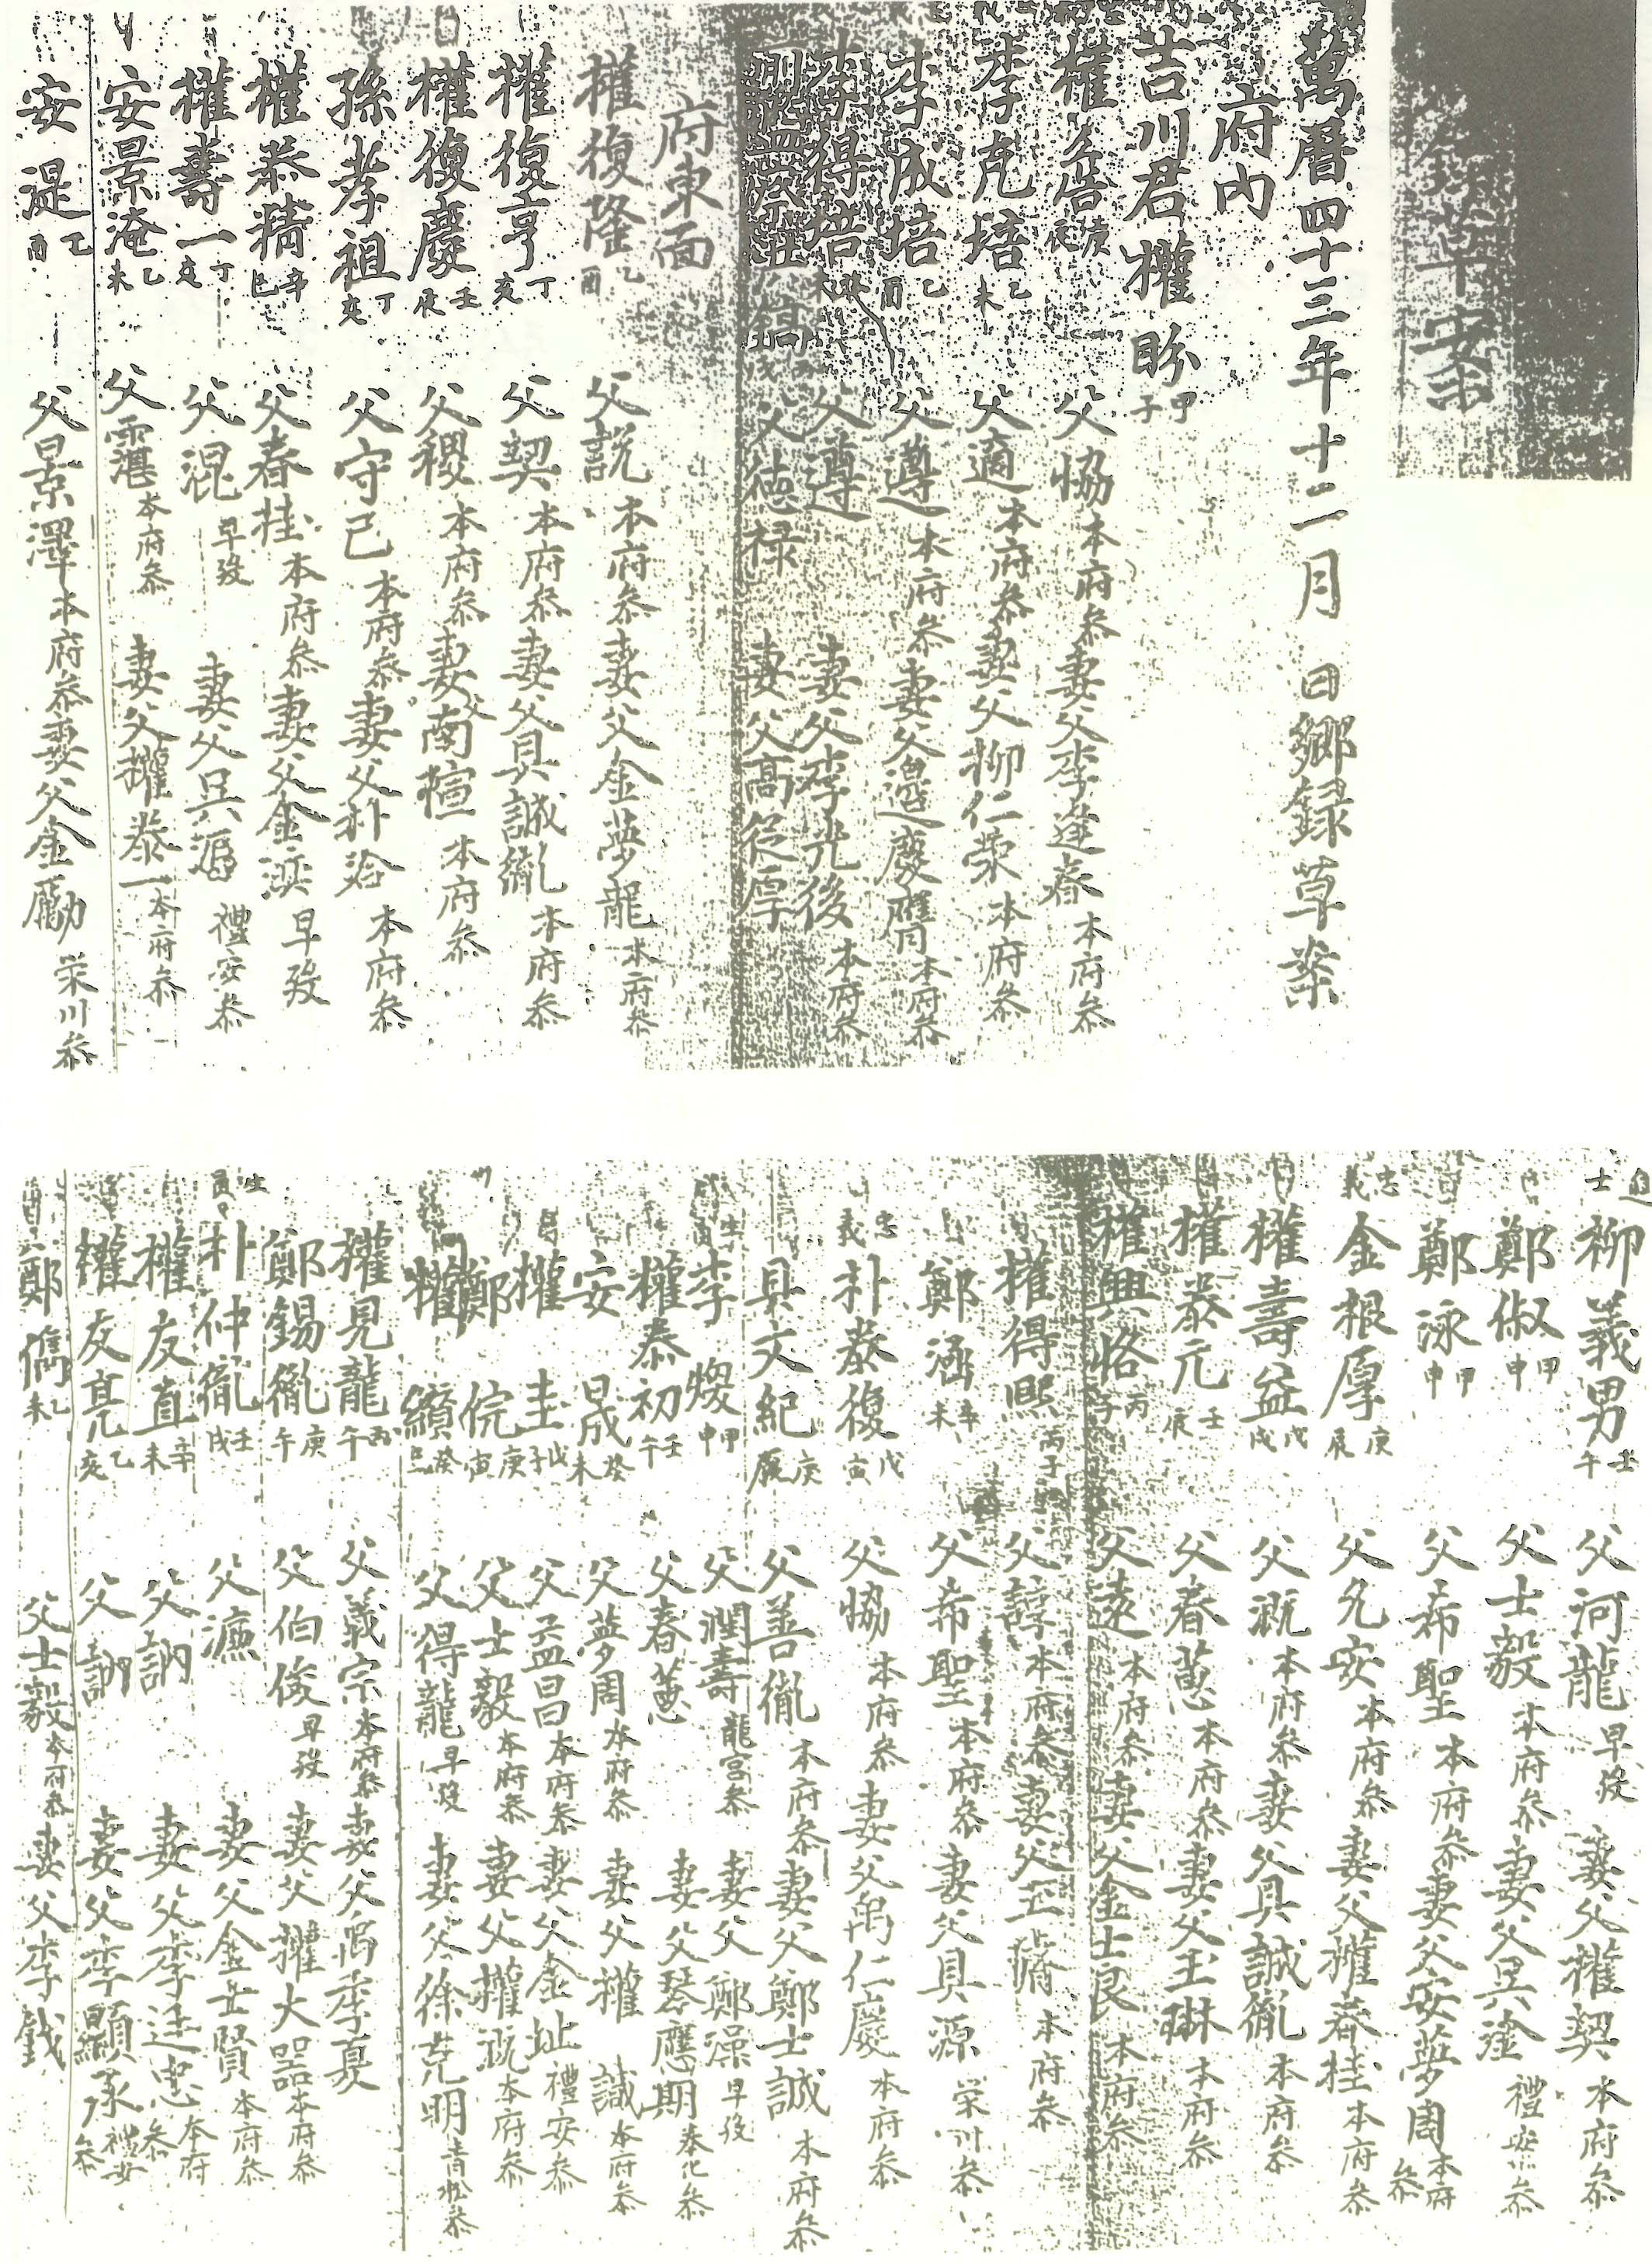 鄉草案
萬曆四十三年十二月 日鄉錄草案
府內
吉川君權 盼 甲子
權 庚辰 父恊 本府叅 妻父李逢春 本府叅
李克培 乙未 父適 本府叅 妻父柳仁榮 本府叅
李成培 乙酉 父遵 本府叅 妻父邊慶膺 本府叅
李得培 父遵 妻父李光後 本府叅
父德祿 妻父高從厚
府東面
權復隆 乙酉 父說 本府叅 妻父金夢龍 本府叅
權復亨 丁亥 父契 本府叅 妻父具誠胤 本府叅
權復慶 壬辰 父稷 本府叅 妻父南愃 本府叅
孫孝祖 丁亥 父守己 本府叅 妻父朴洽 本府叅
權泰精 辛巳 父春桂 本府叅 妻父金渶 早歿
權壽一 丁亥 父混 早歿 妻父吳 禮安叅
安景淹 乙未 父霮 本府叅 妻父權泰一 本府叅
安湜 乙酉 父景澤 本府叅 妻父金勵 榮川叅
進士 柳義男 壬午 父河龍 早歿 妻父權契 本府叅
鄭俶 甲申 父士毅 本府叅 妻父吳淦 禮安叅
鄭泳 甲申 父希聖 本府叅 妻父安夢周 本府叅
忠義 金根厚 庚辰 父允安 本府叅 妻父權春桂 本府叅
權壽益 戊戌 父溉 本府叅 妻父具誠胤 本府叅
權泰元 壬辰 父春蕙 本府叅 妻父王琳 本府叅
權興恪 丙子 父遠 本府叅 妻父金士良 本府叅
權得熙 丙子 父諄 本府叅 妻父 本府叅
鄭涵 辛未 父希聖 本府叅 妻父具源 榮川叅
忠義 朴泰復 戊寅 父恊 本府叅 妻父禹仁慶 本府叅
具文紀 庚辰 父善胤 本府叅 妻父鄭士誠 本府叅
生員 李燠 甲申 父潤壽 龍宮叅 妻父鄭澡 早歿
權泰初 壬午 父春蕙 妻父琴應期 奉化叅
安晟 癸未 父夢周 本府叅 妻父權誠 本府叅
權圭 戊子 父益昌 本府叅 妻父金址 禮安叅
鄭俒 庚寅 父士毅 本府叅 妻父權溉 本府叅
權纘 癸巳 父得龍 早歿 妻父徐克明 青松叅
權見龍 丙午 父義宗 本府叅 妻父禹季夏
鄭錫胤 庚午 父伯俊 早歿 妻父權大器 本府叅
生員 朴仲胤 壬戌 父濂 妻父金士賢 本府叅
權友直 辛未 父訥 妻父李廷忠 本府叅
權友亮 乙亥 父訥 妻父李顯承 禮安叅
鄭儁 乙未 父士毅 本府叅 妻父李鉞